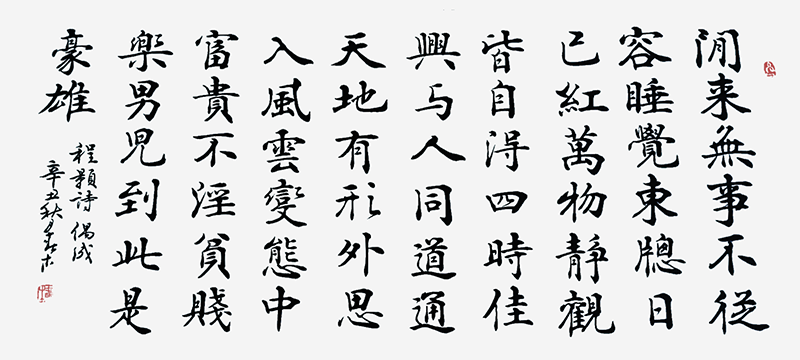 閒来無事不從
容睡覺東牕日
已紅萬物靜觀
皆自得四時佳
興与人同道通
天地有形外思
入風雲變態中
富貴不淫貧賤
樂男児到此是
豪雄
程顥詩 偶成
辛丑秋